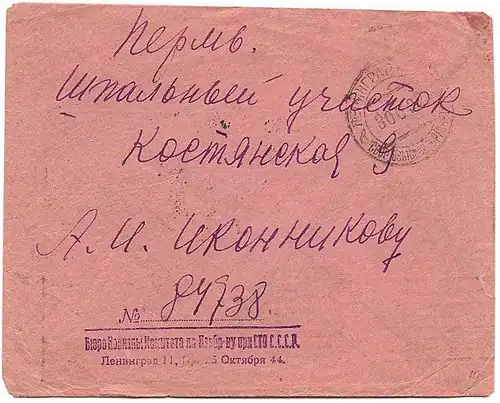 Пермь.
Шпальный участок
Костянская 9
А. И. Иконникову
№ 84738
Бюро Нац­ Комитета по Изобр-ву при СТО С.С.С.Р.
Ленинград 11, 25 Октября 44.
ЛЕНИНГРАД